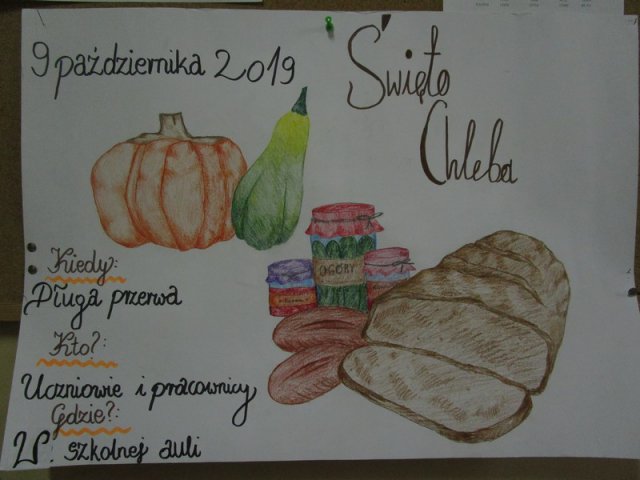 9 października 2019
Święto
Chleba
Kiedy:
Długa przerwa
Kto?:
Uczniowie i pracownicy
Gdzie?:
W szkolnej auli
OGÓRY